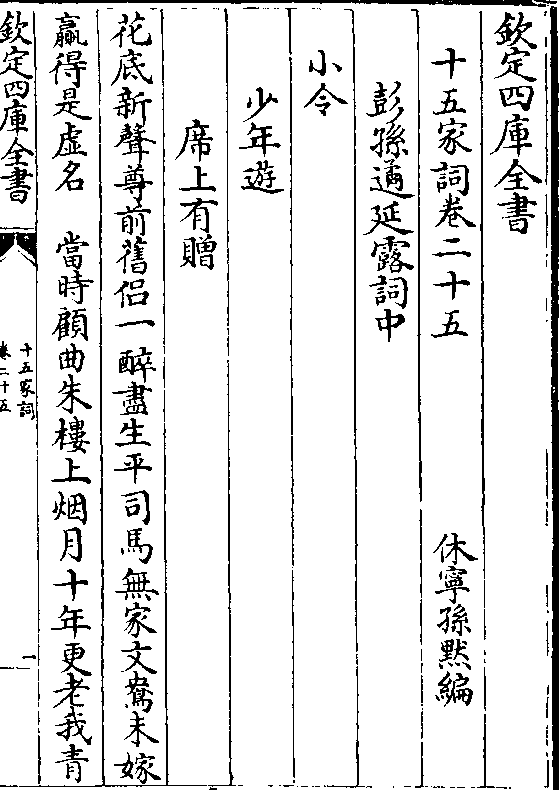 欽定四庫全書
十五家詞卷二十五　休寧孫默編
彭孫遹延露詞中
小令
少年遊
席上有贈
花底新聲尊前舊侶一醉盡生平司馬無家文鴦未嫁
贏得是虛名　當時顧曲朱樓上烟月十年更老我青
欽定四庫全書
十五家詞
卷二十五
一